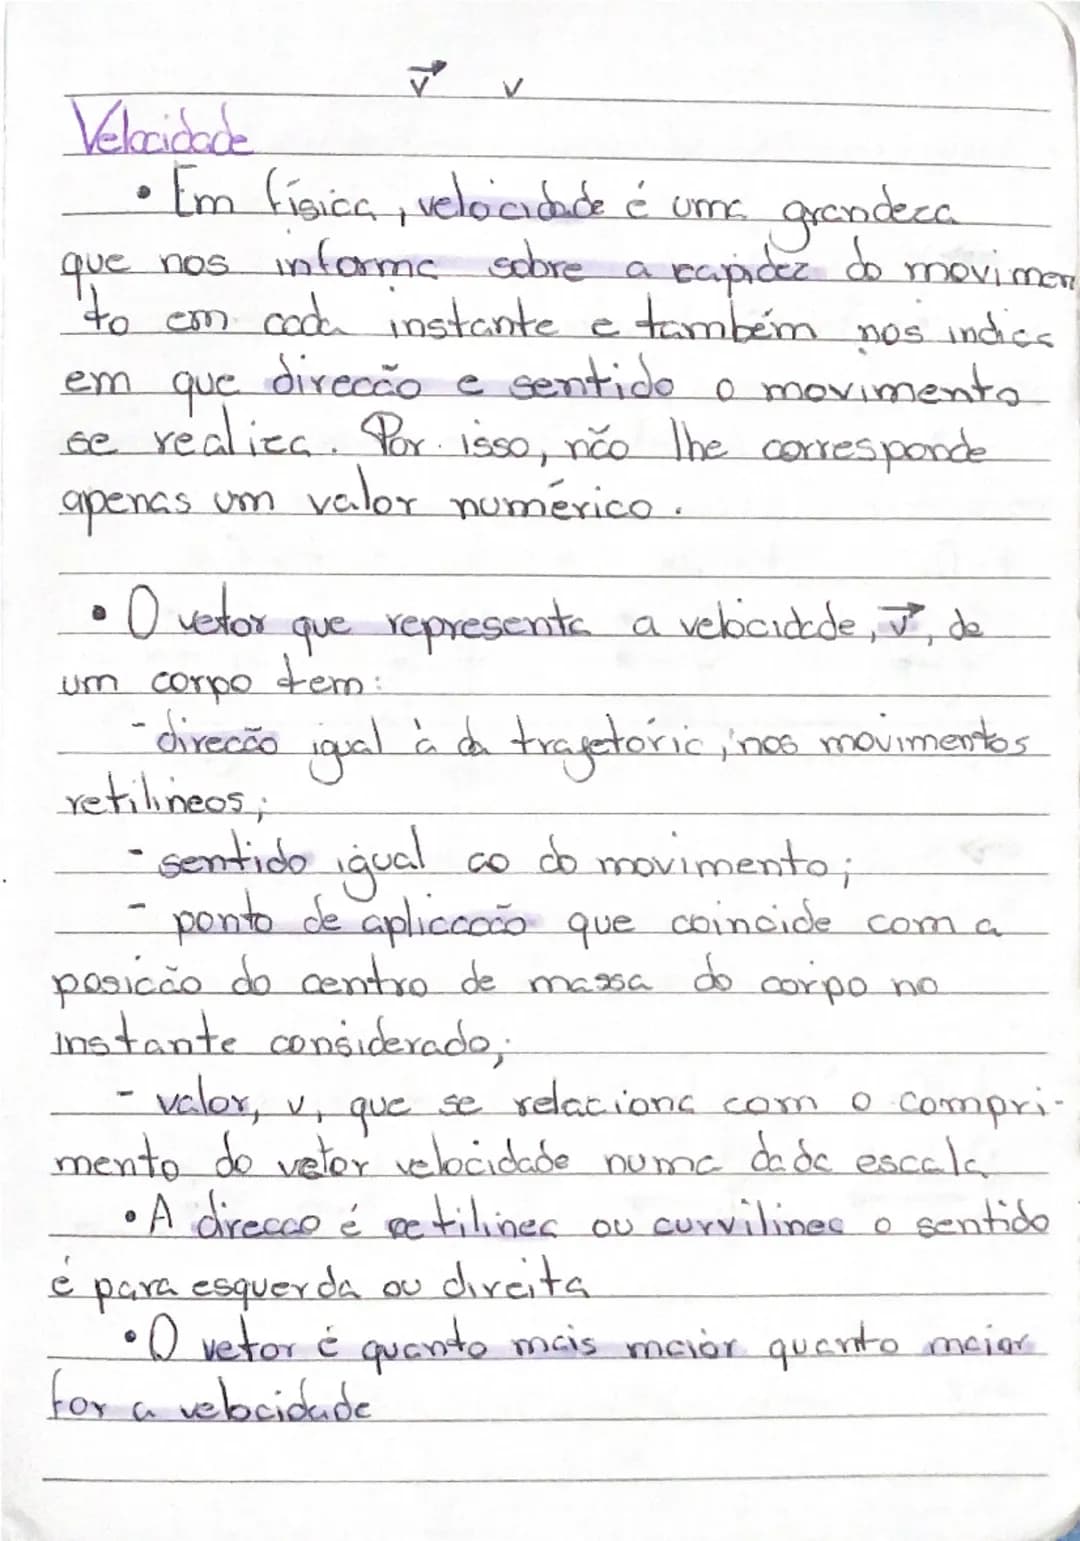 v⃗ v
Velocidade
• Em física, velocidade é uma grandeza
que nos informa sobre a rapidez do movimen
to em cada instante e também nos indica
em que direcão e sentido o movimento
se realiza. Por isso, não lhe corresponde
apenas um valor numérico.
• O vetor que representa a velocidade, v⃗, de
um corpo tem:
- direcão igual à da trajetória, nos movimentos
retilíneos;
- sentido igual ao do movimento;
- ponto de aplicacão que coincide com a
posicão do centro de massa do corpo no
instante considerado;
- valor, v, que se relaciona com o compri-
mento do vetor velocidade numa dada escala
• A direcco é retilinea ou curvilinea o sentido
é para esquerda ou direita
• O vetor é quanto mais maior quanto maior
for a velocidade